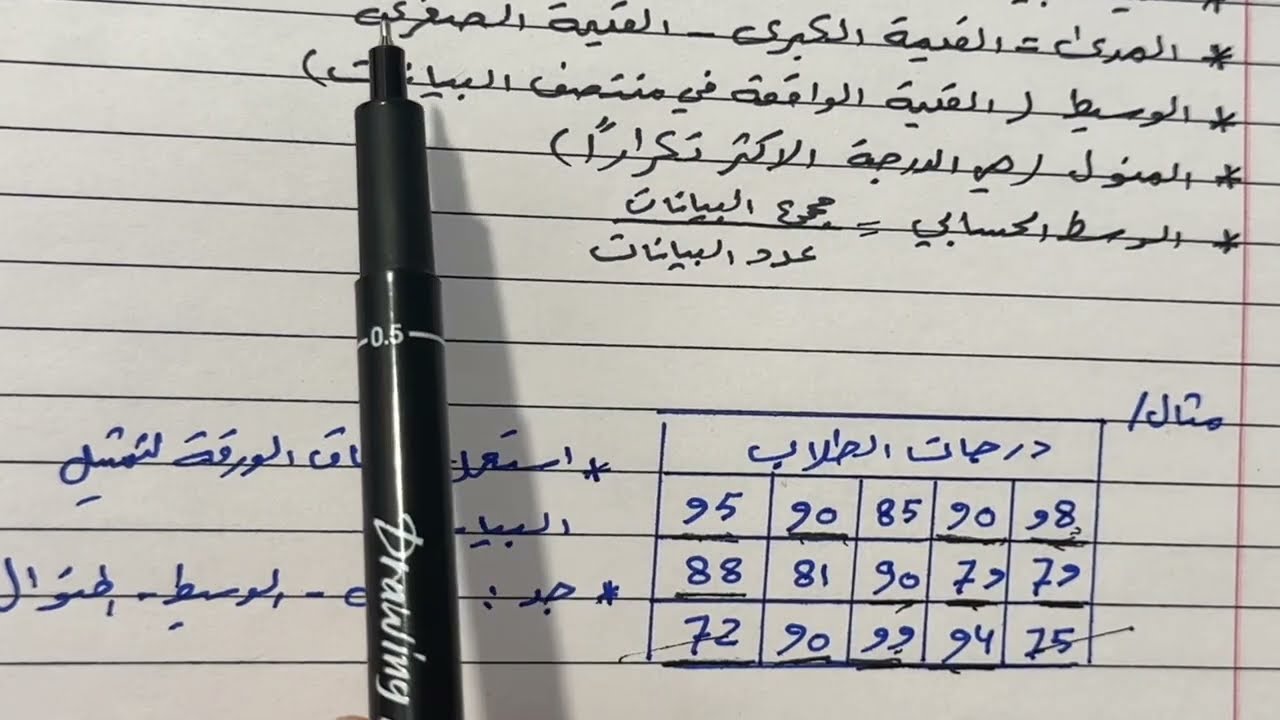 * المدى = القيمة الكبرى - القيمة الصغرى
* الوسيط (القيمة الواقعة في منتصف البيانات)
* المنوال (هي الدرجة الاكثر تكراراً)
* الوسط الحسابي = مجموع البيانات
عدد البيانات
مثال/
درجات الطلاب
98 90 85 90 95
79 79 90 81 88
75 94 99 90 72
* الورقة لتمثيل
* جد : - الوسيط - المنوال
0.5
Drawing